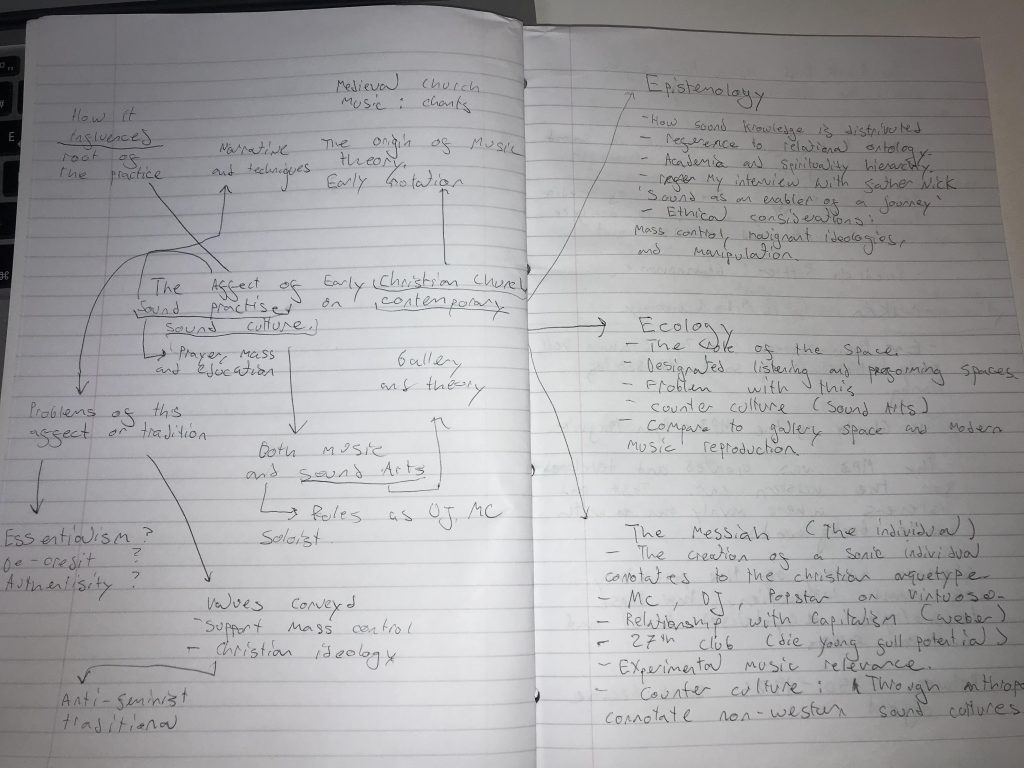 Medieval Church
Music : chants
How it
Influences
root of
the practice
Narrative
and techniques
The origin of Music
theory.
Early notation
The Affect of Early Christian Church
Sound practises on contemporary
sound culture.
Prayer, Mass
and education
Gallery
and theory
Problems of this
affect or tradition
Both music
and Sound Arts
Roles as DJ, MC
Soloist
Essentialism ?
De-credit ?
Authentisity ?
Values conveyd
- Support Mass control
- Christian ideology
Anti-feminist
traditional
Epistemology
- How sound knowledge is distributed
- reference to relational ontology.
- Academic and Spirituality hierarchy.
- My interview with father Nick
'Sound as an enabler of a journey'
- Ethical considerations:
Mass control, malignant ideologies,
and manipulation.
Ecology
- The role of the space.
- Designated listening and performing spaces
- Problem with this
- counter culture (Sound Arts)
- Compare to gallery space and modern
music reproduction.
The Messiah (The individual)
- The creation of a sonic individual
connotates to the christian arquetype.
- MC, DJ, Popstar or Virtuoso.
- Relationship with Capitalism (weber)
- 27th club (die young full potential)
- Experimental music relevance.
- Counter culture : Through anthropo
connotate non-western sound cultures